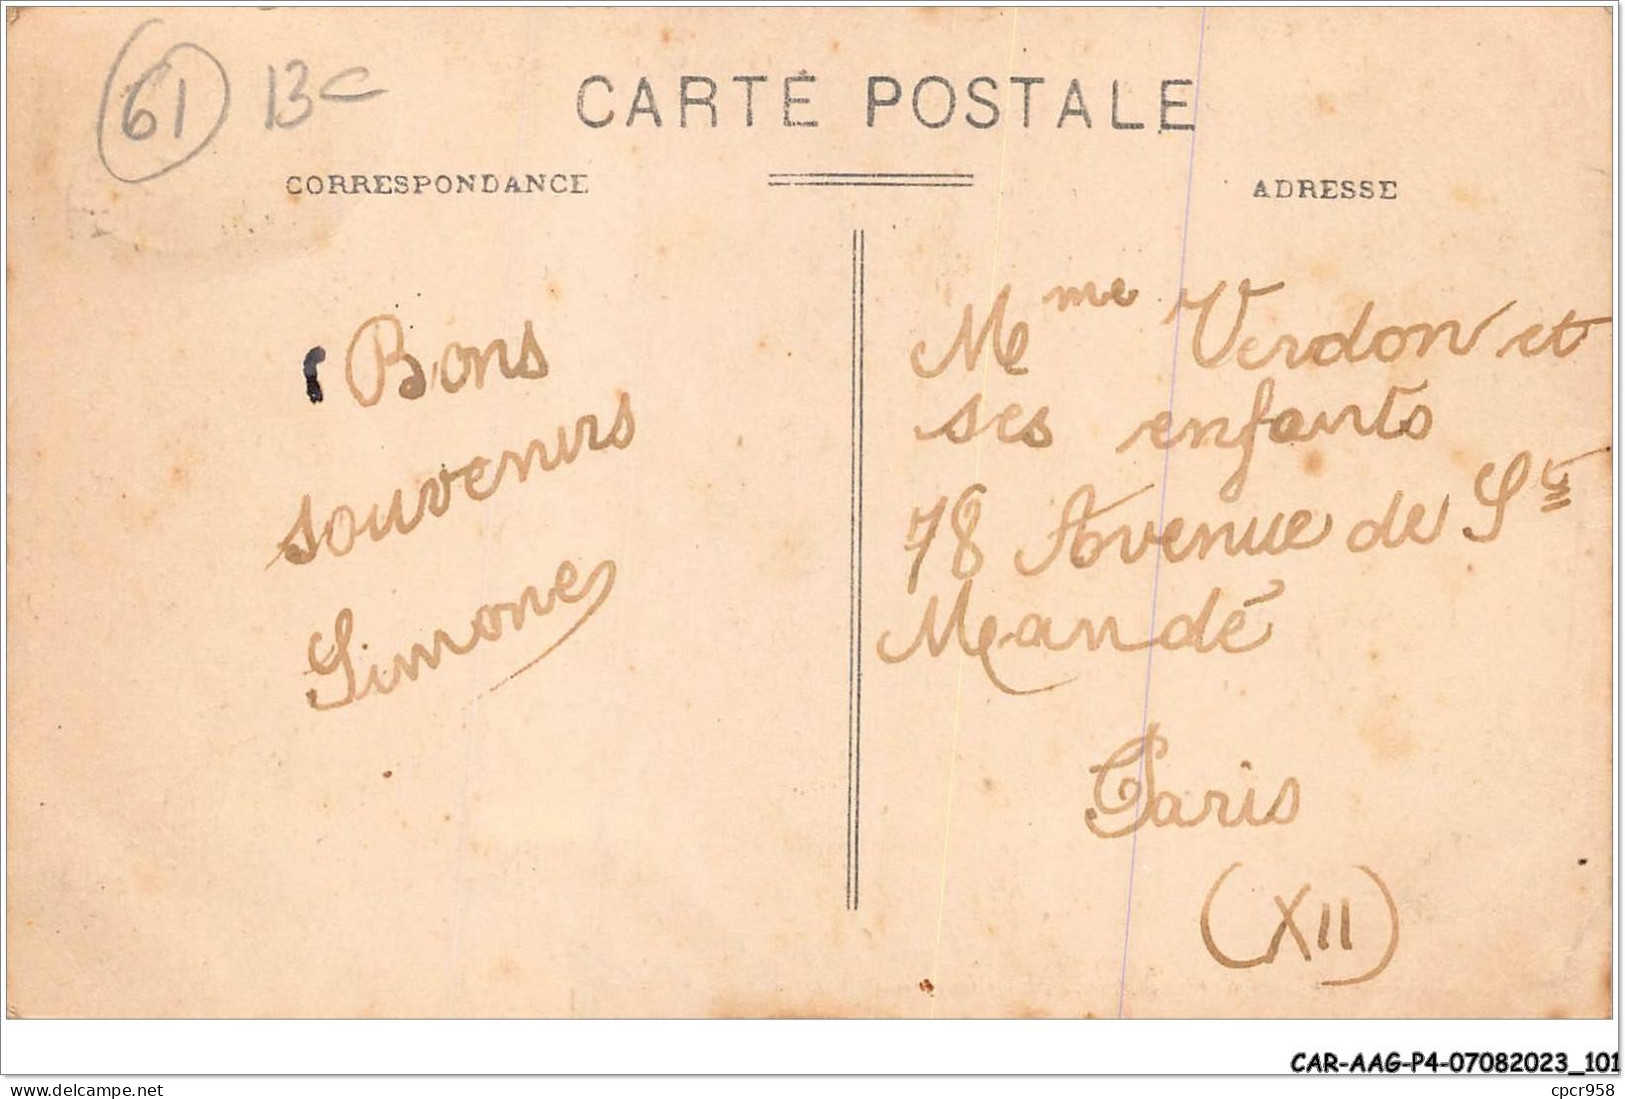 61 13c
CARTE POSTALE
CORRESPONDANCE
ADRESSE
Bons
souvenirs
Simone
Mme Verdon et
ses enfants
78 Avenue de St
Mandé
Paris
(XII)
CAR-AAG-P4-07082023_101
delcampe.net
cpcr958